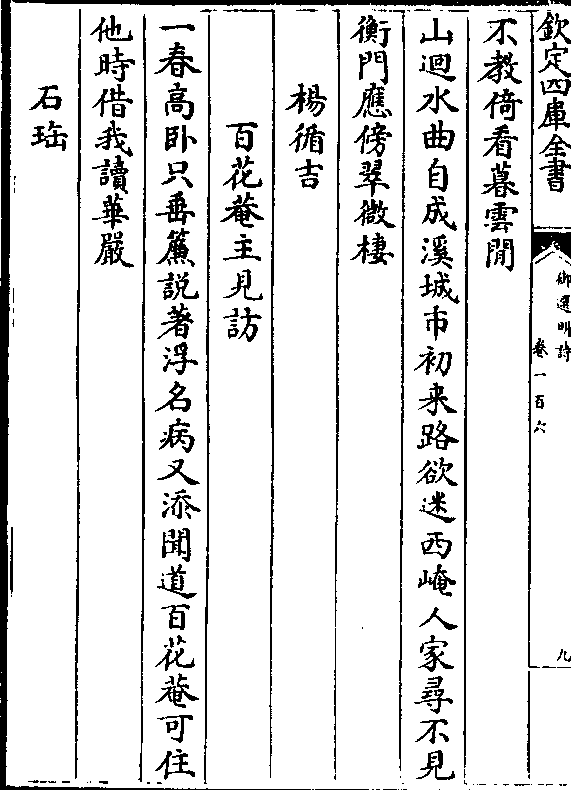 欽定四庫全書
御選明詩
卷一百六
九
不教倚看暮雲閒
山迴水曲自成溪城市初来路欲迷西崦人家尋不見
衡門應傍翠微棲
楊循吉
百花菴主見訪
一春高卧只垂簾説著浮名病又添聞道百花菴可住
他時借我讀華嚴
石珤